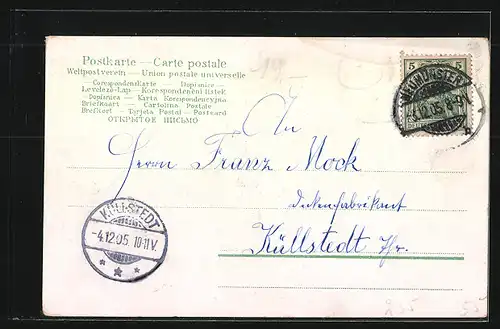 Postkarte — Carte postale
Weltpostverein — Union postale universelle
Correspondenzkarte — Dopisnice
Levelező-Lap — Korespondenční lístek
Dopisnica — Karta Korrespondencyjna
Briefkaart — Cartolina Postale
Brefkort — Tarjeta Postal — Postcard
ОТКРЫТОЕ ПИСЬМО
5 5
3.12.05 8-9V.
An
Herrn Franz Mock
Deckenfabrikant
Küllstedt Thr.
KÜLLSTEDT
-4.12.05. 10-11V.